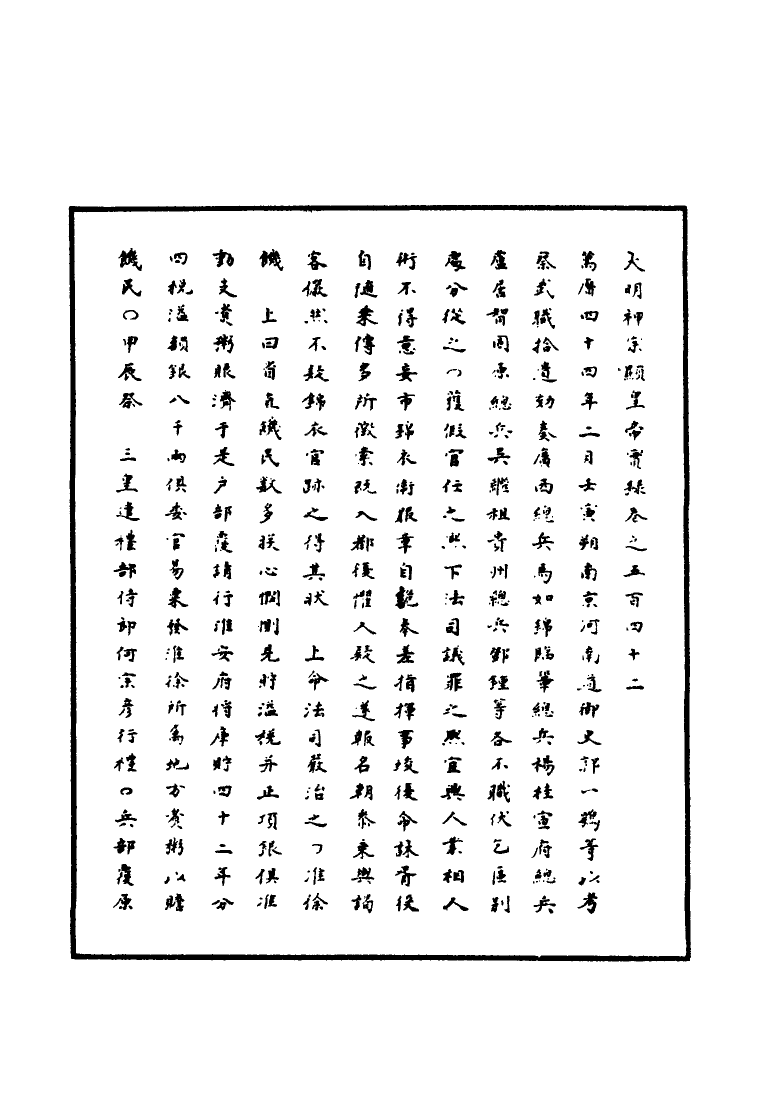 大明神宗顯皇帝實錄卷之五百四十二
萬曆四十四年二月壬寅朔南京河南道御史郭一鶚等以考
察武職拾遺劾奏廣西總兵馬如錦臨鞏總兵楊桂宣府總兵
盧居智固原總兵吳繼祖貴州總兵鄧鍾等各不職伏乞區別
處分從之○獲假官任之熙下法司議罪之熙宜興人業相人
術不得意妄市錦衣衛服章自詭奉差指揮事竣復命詠胥役
自隨乘傳多所徵索既入都復懼人疑之遂報名朝參東輿謁
客儼然不疑錦衣官跡之得其狀　上命法司嚴治之○淮徐
饑　上曰省直饑民數多朕心憫惻見貯溢稅并正項銀俱准
動支煮粥賑濟于是戶部覆請行淮安府借庫貯四十二年分
四稅溢額銀八千兩俱委官易粟發淮徐所屬地方煮粥以贍
饑民○甲辰祭　三皇遣禮部侍郎何宗彥行禮○兵部覆原